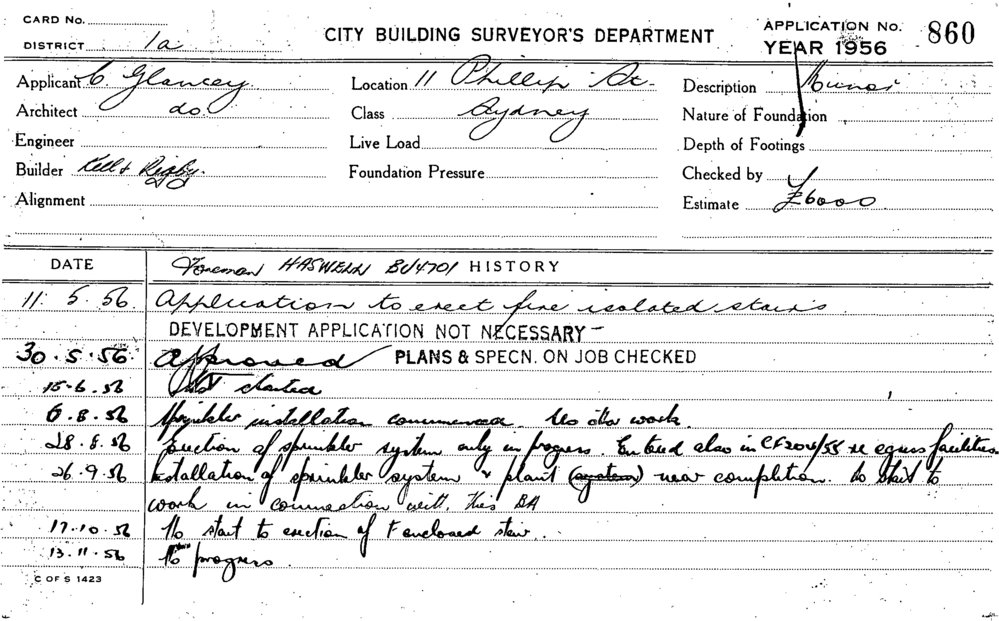 CARD No.
DISTRICT 1a
CITY BUILDING SURVEYOR'S DEPARTMENT
APPLICATION No. 860
YEAR 1956
Applicant C Glancey Location 11 Phillip St. Description Minor
Architect do Class Sydney Nature of Foundation
Engineer Live Load Depth of Footings
Builder Kell & Rigby. Foundation Pressure Checked by
Alignment Estimate £6000
DATE Foreman HASWELL BU4701 HISTORY
11. 5. 56 Application to erect fire isolated stairs
DEVELOPMENT APPLICATION NOT NECESSARY-
30. 5. 56. Approved PLANS & SPECN. ON JOB CHECKED
15-6. 56 Not started
6. 8. 56 Sprinkler installation commenced. No other work.
28. 8. 56 Erection of sprinkler system only in progress. Entered also in re egress facilities
26. 9. 56 Installation of sprinkler system & plant (system) near completion. No start to
work in connection with this BA
17. 10. 56 No start to erection of enclosed stair.
13. 11. 56 No progress.
C OF S 1423